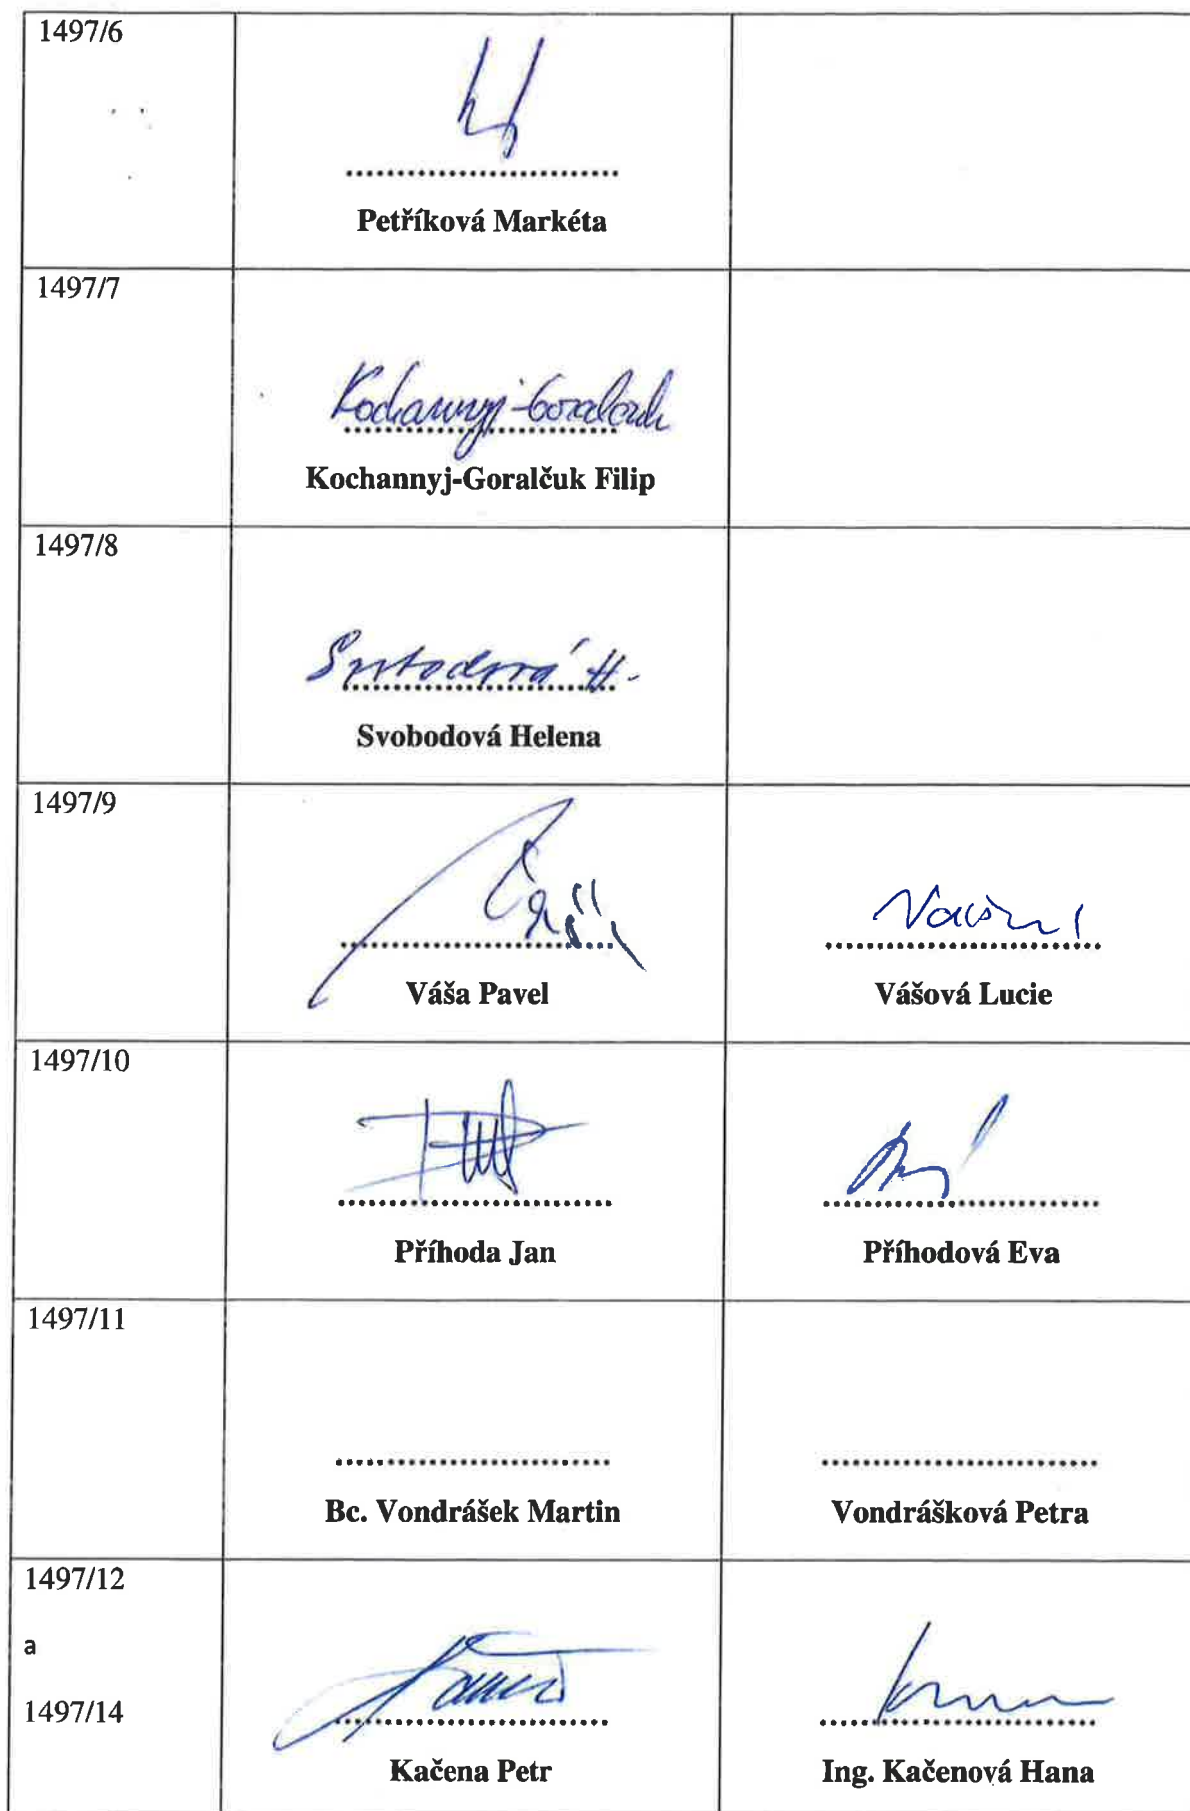 1497/6
Petříková Markéta
1497/7
Kochannyj-Goralčuk
Kochannyj-Goralčuk Filip
1497/8
Svobodová H.
Svobodová Helena
1497/9
Váša Pavel
Vášová Lucie
1497/10
Příhoda Jan
Příhodová Eva
1497/11
Bc. Vondrášek Martin
Vondrášková Petra
1497/12
a
1497/14
Kačena Petr
Ing. Kačenová Hana